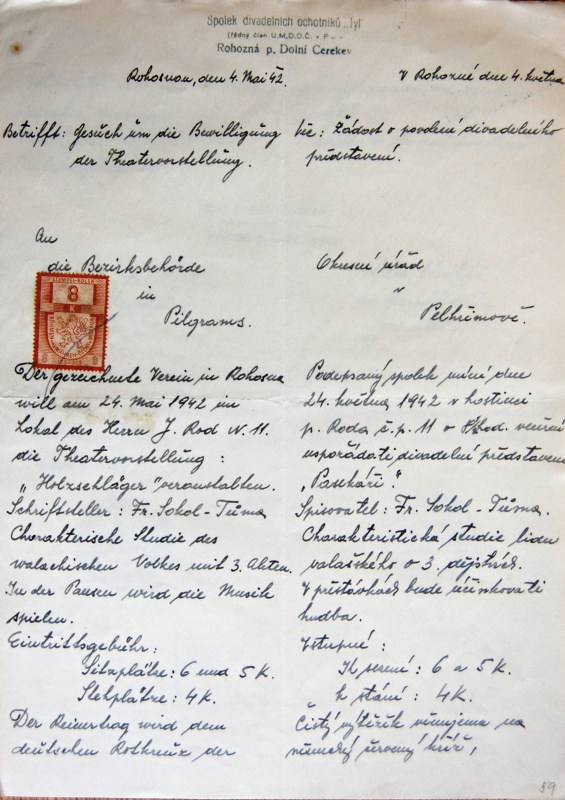 Spolek divadelních ochotníků „Tyl"
(řádný člen Ú.M.D.O.Č.
Rohozná p. Dolní Cerekev
Rohosnau, den 4. Mai 42.
Betrifft: Gesuch um die Bewilligung
der Theatervorstellung.
An
die Bezirksbehörde
in
Pilgrams.
STEMPEL-KOLEK
8
K
Der gezeichnete Verein in Rohosna
will am 24. Mai 1942 im
Lokal des Herrn J. Rod N. 11.
die Theatervorstellung :
„Holzschläger" veranstalten.
Schriftsteller : Fr. Sokol - Tůma
Charakterische Studie des
walachischen Volkes mit 3. Akten.
In der Pausen wird die Musik
spielen.
Eintrittsgebühr :
Sitzplätze : 6 und 5 K.
Stehplätze : 4 K.
Der Reinertrag wird dem
deutschen Rotkreuz der
V Rohozné dne 4. května
Věc : Žádost o povolení divadelního
představení.
Okresní úřad
v
Pelhřimově.
Podepsaný spolek míní dne
24. května 1942 v hostinci
p. Roda č. p. 11 o hod. večerní
uspořádati divadelní představení
„Pasekáři".
Spisovatel : Fr. Sokol - Tůma.
Charakteristická studie lidu
valašského o 3. dějstvích.
V přestávkách bude účinkovati
hudba.
Vstupné :
K sezení : 6 a 5 K.
k stání : 4 K.
Čistý výtěžek věnujeme na
německý červený kříž,
59